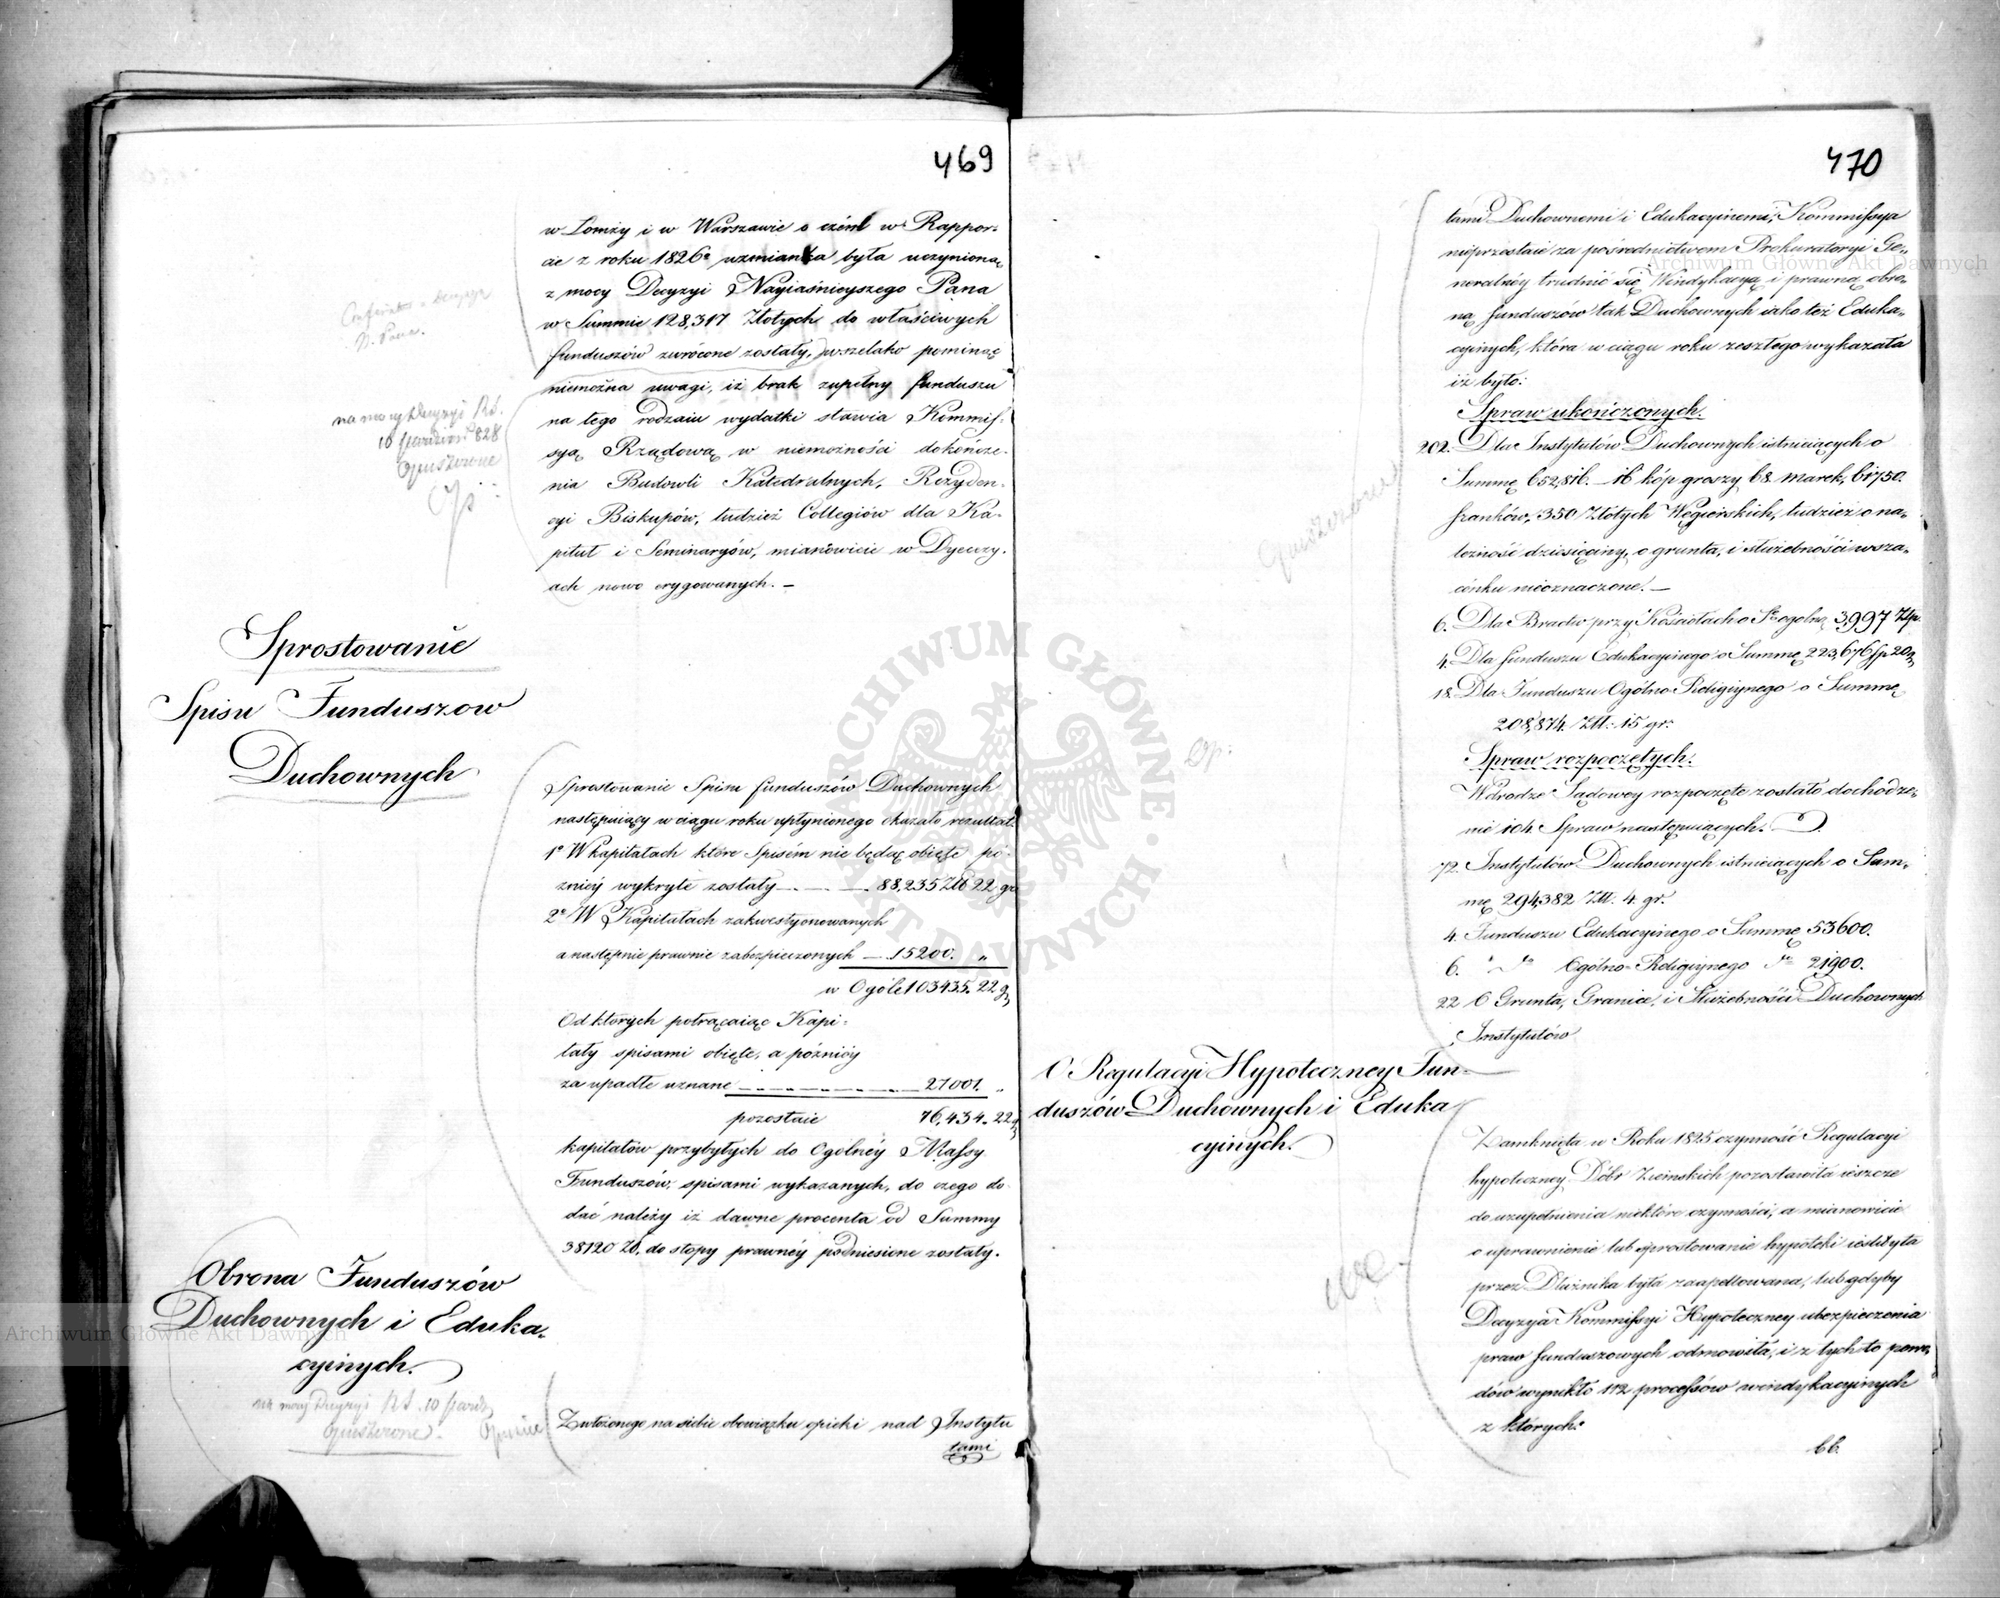 469
w Łomży i w Warszawie o czém w Rappor-
cie z roku 1826o wzmianka była uczynioną
z mocy Decyzyi Nayiaśnieyszego Pana
w Summie 128,317 Złotych do właściwych
funduszów zwrócone zostały, wszelako pominąć
niemożna uwagi, iż brak zupełny funduszu
na tego rodzaiu wydatki stawia Kommis-
syą Rządową w niemożności dokończe-
nia Budowli Katedralnych, Rezyden-
cyi Biskupów, tudzież Collegiów dla Ka-
pituł i Seminaryów, mianowicie w Dyecezy-
ach nowo erygowanych. —
N. Pana.
na mocy Decyzyi RS.
10 828
opuszczone
Sprostowanie
Spisu Funduszow
Duchownych
Sprostowanie Spisu funduszów Duchownych
następuiący w ciągu roku upłynionego okazało rezultat.
1o W kapitałach które Spisém nie będąc obięte pó-
źniéy wykryte zostały — 88,235 Złt 22 gr
2o W Kapitałach zakwestyonowanych
a następnie prawnie zabezpieczonych — 15200. "
w Ogóle 103435. 22 g
Od których potrącaiąc Kapi-
tały spisami obięte, a późniéy
za upadłe uznane 27001. "
pozostaie 76,434. 22 g
kapitałów przybyłych do Ogólnéy Massy
Funduszów, spisami wykazanych, do czego do-
dać należy iż dawne procenta od Summy
38120 Zł. do stopy prawnéy podniesione zostały.
Obrona Funduszów
Duchownych i Eduka-
cyinych.
na mocy Decyzyi RS. 10
opuszczone.
Z włożonego na siebie obowiązku opieki nad Instytu
tami
470
tami Duchownemi i Edukacyinemi, Kommissya
nieprzestaie za pośrednictwem Prokuratoryi Ge-
neralnéy trudnić się Windykacyą i prawną obro-
ną funduszów tak Duchownych iako też Eduka-
cyinych, która w ciągu roku zeszłego wykazała
iż było:
Spraw ukończonych.
202. Dla Instytutów Duchownych istnieiących o
Summę 652,816. — 16 kóp groszy 68 marek, 61750.
franków, 350 Złotych Węgierskich, tudzież o na-
leżność dziesięciny, o grunta, i służebności w sza-
cunku nieoznaczone. —
6. Dla Bractw przy Kościołach o Sę ogólną 3,997 Złp.
4. Dla funduszu Edukacyinego o Summę 223,676 fp 20 g
18. Dla Funduszu Ogólno-Religiynego o Summę
208,874 Złt. 15 gr.
Spraw rozpoczętych.
W drodze Sądowey rozpoczęte zostało dochodze-
nie 104 Spraw następuiących.
72. Instytutów Duchownych istnieiących o Sum-
mę 294,382 Złt. 4 gr.
4. Funduszu Edukacyinego o Summę 53600.
6. " do Ogólno-Religiynego do 21900.
22 O Grunta, Granice, i Służebności Duchownych
Instytutów
opuszczone
Op:
O Regulacyi Hypoteczney Fun-
duszów Duchownych i Eduka
cyinych.
Zamknięta w Roku 1825 czynność Regulacyi
hypoteczney Dóbr Ziemskich pozostawiła ieszcze
do uzupełnienia niektóre czynności, a mianowicie
o uprawnienie lub sprostowanie hypoteki ieśli ta
przez Dłużnika była zaapellowana, lub gdyby
Decyzya Kommissyi Hypoteczney ubezpieczenia
praw funduszowych odmówiła, i z tych to powo-
dów wynikło 112 processów windykacyinych
z których:
66.
ARCHIWUM GŁÓWNE · AKT DAWNYCH ·
Archiwum Główne Akt Dawnych
Archiwum Główne Akt Dawnych